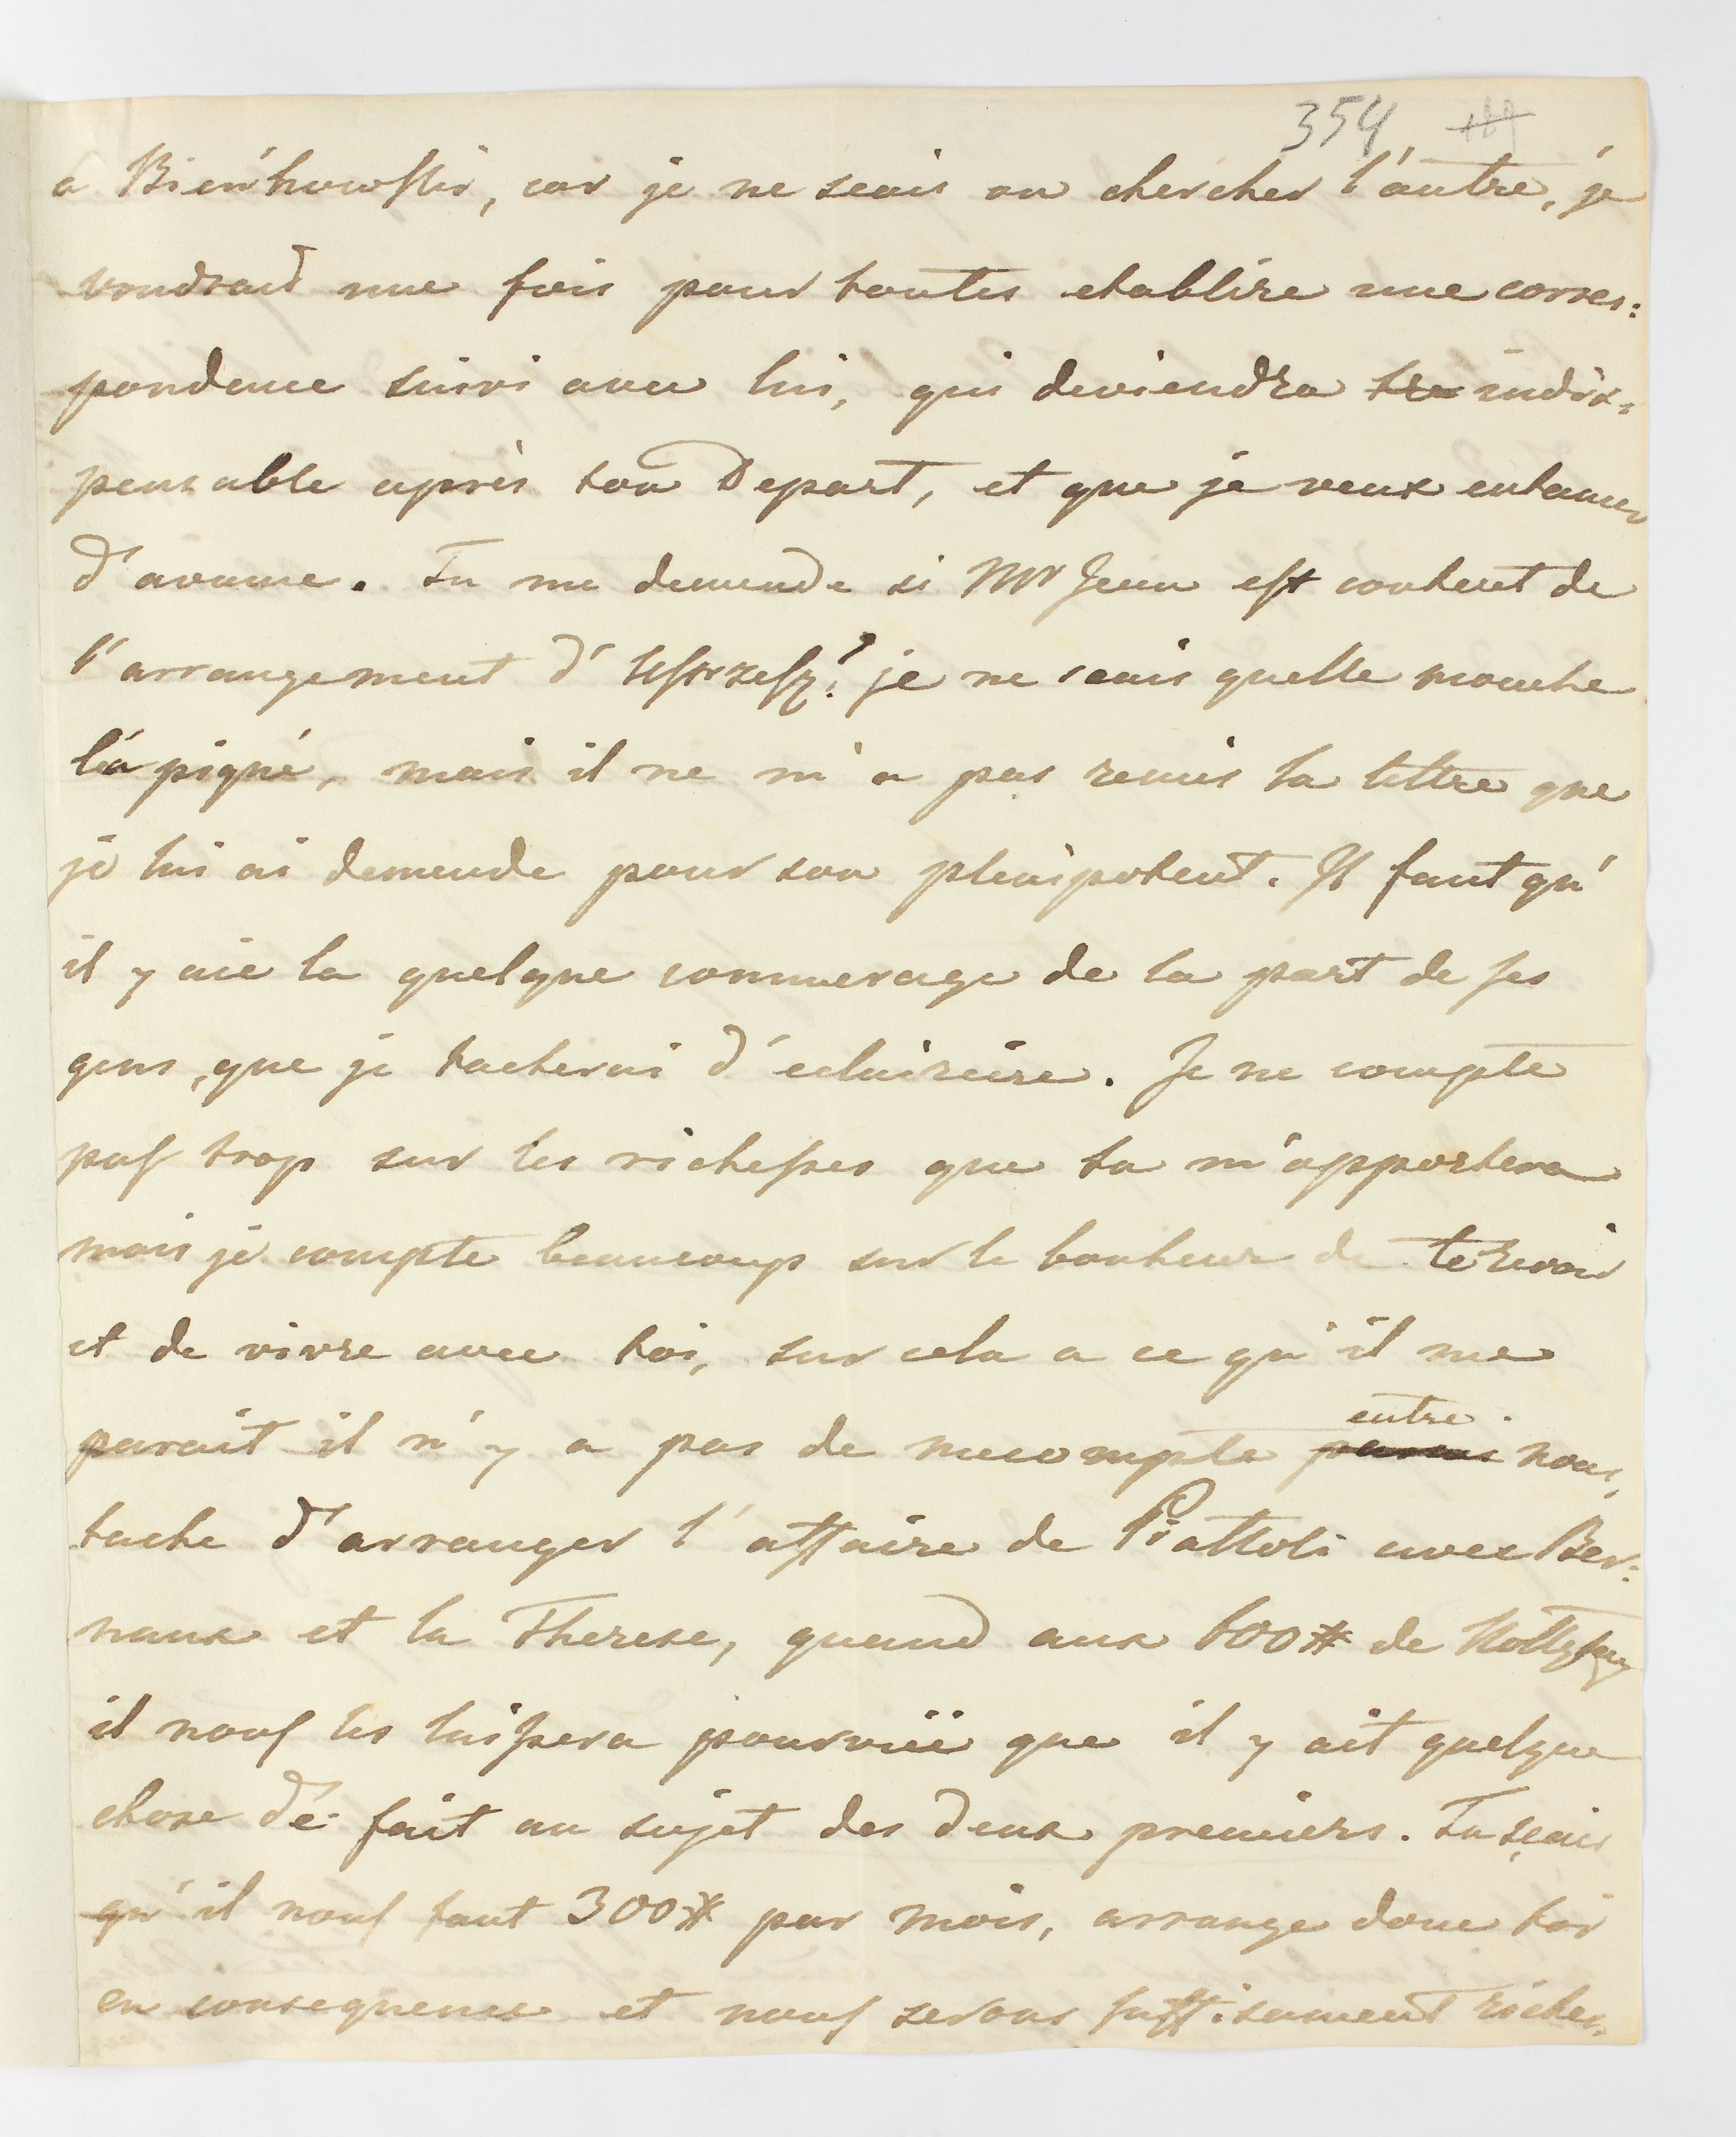 354
a Bieńkowski, car je ne scais ou chercher l'autre, je
voudrais une fois pour toutes etablire une corres:
pondence suivi avec lui, qui deviendra tre indis:
pensable après ton Depart, et que je veux entamer
d'avance. Tu me demende si Mr Jean est content de
l'arrangement d' je ne scais quelle mouche
l'á piqué, mais il ne m'a pas remis la lettre que
je lui ai demende pour son plenipotent. Il faut qu'
il y aie la quelque commerage de la part de ses
gens, que je tacherai d'eclaircire. Je ne compte
pas trop sur les richesses que tu m'apportera
mais je compte beaucoup sur le bonheur de te revoir
et de vivre avec toi, sur cela a ce qu'il me
parait il n'y a pas de mecompte entre nous,
tache d'arranger l'affaire de Piattoli avec Ber:
naux et la Therese, quand aux 600# de
il nous les laissera pourvüe que il y ait quelque
chose de fait au sujet des deux premiers. Tu sçais
qu'il nous faut 300# par mois, arrange donc toi
en consequence et nous serons suffisament riches,